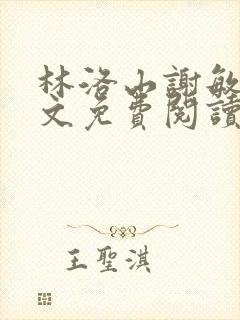 林洛山謝敏
文免費閱讀
王聖淇